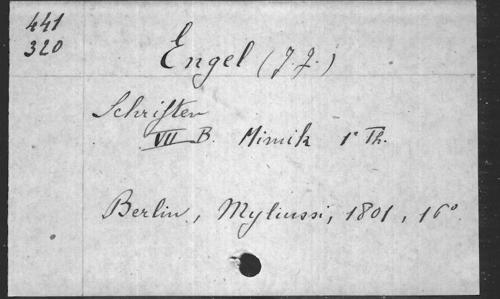 441
320
Engel (J. J.)
Schriften
VII B. Mimik 1r Th.
Berlin, Myliussi, 1801, 16o.